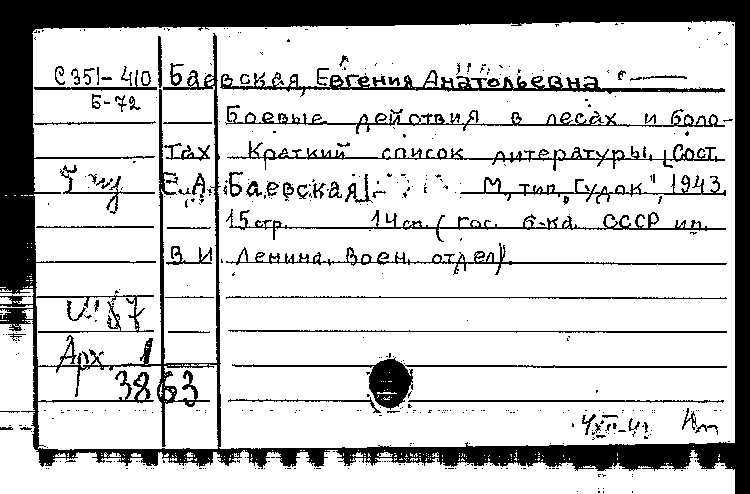 С351-410 Баевская, Евгения Анатольевна.
Б-72
Боевые действия в лесах и боло-
тах. Краткий список литературы. [Сост.
Е. А. Баевская]. М, тип. „Гудок", 1943.
15 стр. 14 см. (Гос. б-ка СССР им.
В. И. Ленина. Воен. отдел).
Арх. 1
3863